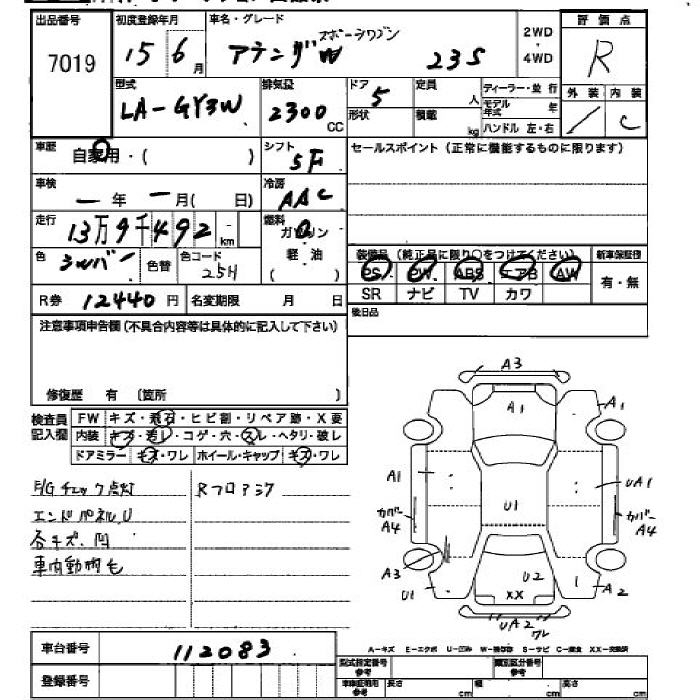 出品番号 初度登録年月 車名・グレード 2WD・4WD 評価点
7019 15 6月 アテンザ スポーツワゴン W 23S R
外装 内装
／ C
型式 排気量 ドア 定員 人 ディーラー・並行
LA-GY3W 2300CC 5 形状 積載 kg モデル年式 年 ハンドル 左・右
車歴 自家用・( ) シフト 5F セールスポイント (正常に機能するものに限ります)
車検 ー年 ー月( 日) 冷房 AAC
走行 13万9千492km 燃料 ガソリン 軽・油 ( )
色 シルバー 色替 色コード 25H
装備品 (純正品に限り○をつけてください) 新車保証書
PS PW ABS エアB AW 有・無
SR ナビ TV カワ
R券 12440円 名変期限 月 日 後日品
注意事項申告欄 (不具合内容等は具体的に記入して下さい)
修復歴 有 〔箇所 〕
検査員記入欄 FW キズ・飛石・ヒビ割・リペア跡・X要
内装 キズ・汚レ・コゲ・穴・スレ・ヘタリ・破レ
ドアミラー キズ・ワレ ホイール・キャップ キズ・ワレ
F/Gチェック点灯 Rフロア
エンドパネルU
各キズ、凹
車内動物毛
A3
A1 A1
A1 UA1
カバーA4 U1 カバーA4
A3 U1 U2 A2
XX
UA2 ワレ
車台番号 112083
登録番号
A-キズ E-エクボ U-凹ミ S-サビ XX-交換済
型式指定番号 参考 類別区分番号 参考
車庫証明用 参考 長さ cm 幅 cm 高さ cm